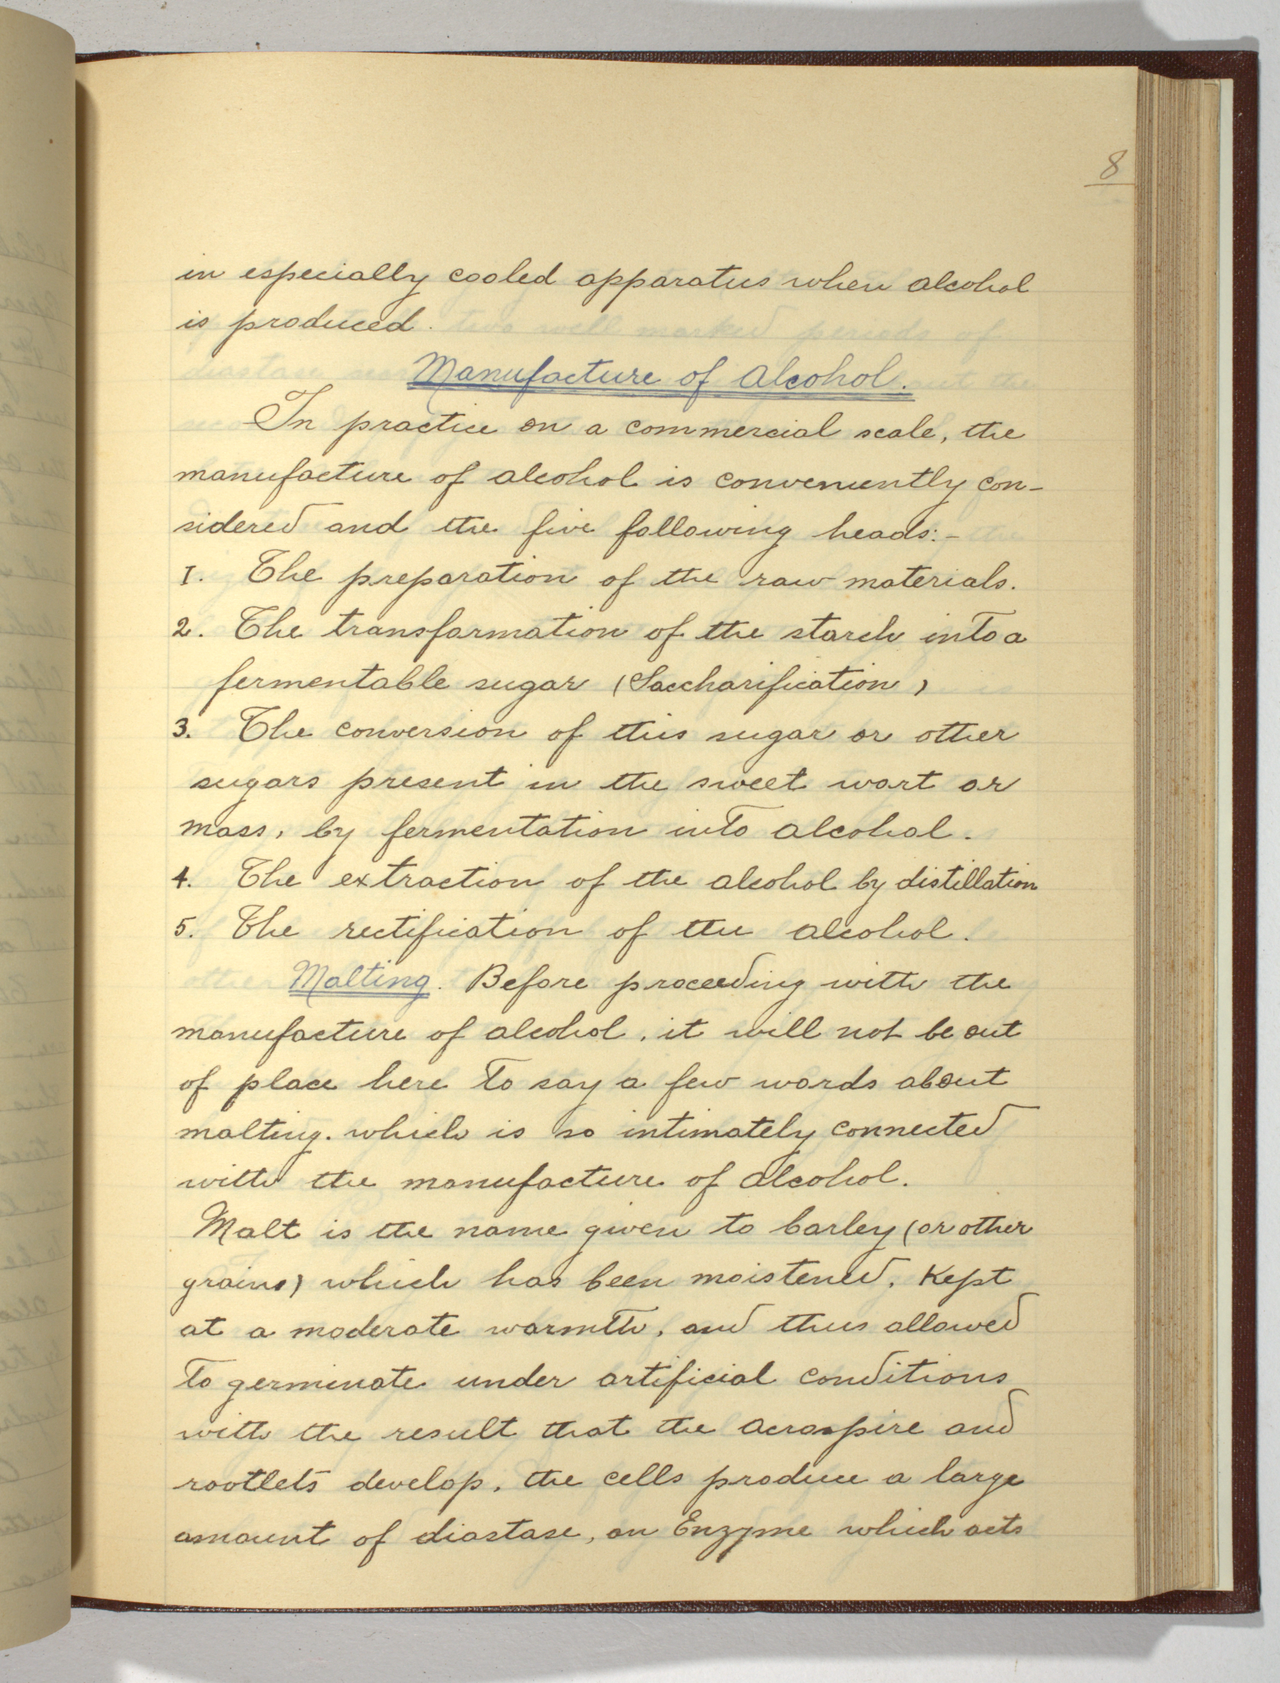 8
in especially cooled apparatus when alcohol
is produced.
Manufacture of Alcohol.
In practice on a commercial scale, the
manufacture of alcohol is conveniently con-
sidered and the five following heads:-
1. The preparation of the raw materials.
2. The transformation of the starch into a
fermentable sugar (Saccharification)
3. The conversion of this sugar or other
sugars present in the sweet wort or
mass, by fermentation into alcohol.
4. The extraction of the alcohol by distillation
5. The rectification of the alcohol.
Malting. Before proceeding with the
manufacture of alcohol, it will not be out
of place here to say a few words about
malting. which is so intimately connected
with the manufacture of alcohol.
Malt is the name given to barley (or other
grains) which has been moistened, Kept
at a moderate warmth, and thus allowed
to germinate under artificial conditions
with the result that the acrospire and
rootlets develop, the cells produce a large
amount of diastase, an Enzyme which acts